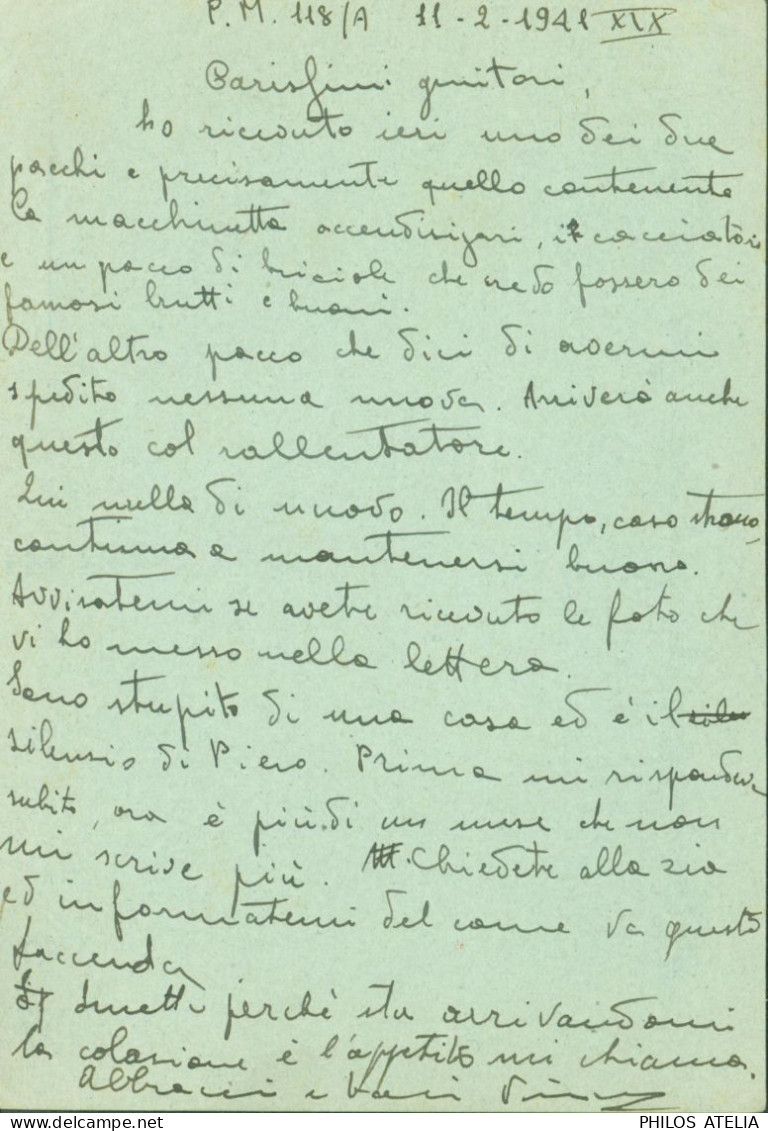 P.M. 118/A 11-2-1941 XIX
Carissimi genitori,
ho ricevuto ieri uno dei due
pacchi e precisamente quello contenente
la macchinetta accendisigari, i cacciatori
e un pacco di briciole che credo fossero dei
famosi brutti e buoni.
Dell'altro pacco che dici di avermi
spedito nessuna nuova. Arriverà anche
questo col rallentatore.
Qui nulla di nuovo. Il tempo, caso strano,
continua a mantenersi buono.
Avvisatemi se avete ricevuto le foto che
vi ho messo nella lettera.
Sono stupito di una cosa ed è il
silenzio di Piero. Prima mi rispondeva
subito, ora è più di un mese che non
mi scrive più. Chiedete alla zia
ed informatemi del come va questa
faccenda
Smetto perchè sta arrivandomi
la colazione e l'appetito mi chiama.
Abbracci e baci
PHILOS ATELIA